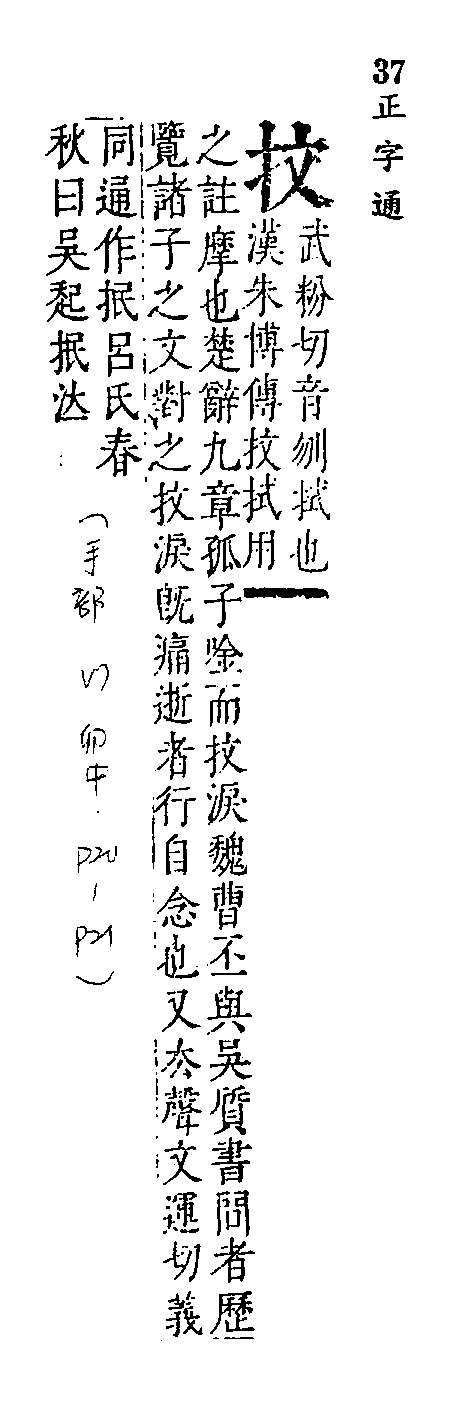 37
正字通
抆
武粉切音刎拭也
漢朱博傳抆拭用
之註摩也楚辭九章孤子唫而抆淚魏曹丕與吳質書間者歷
覽諸子之文對之抆淚旣痛逝者行自念也又厺聲文運切義
同通作抿呂氏春
秋曰吳起抿泣
(手部 卯中. P20-P21)